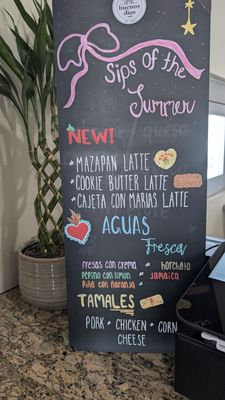 buenos
dias
Sips of the
Summer
NEW!
* MAZAPAN LATTE
* COOKIE BUTTER LATTE
* CAJETA CON MARIAS LATTE
AGUAS
Fresca
Fresas con crema * Horchata
Pepino con limon * Jamaica
Piña con naranja
TAMALES
PORK * CHICKEN * CORN
CHEESE